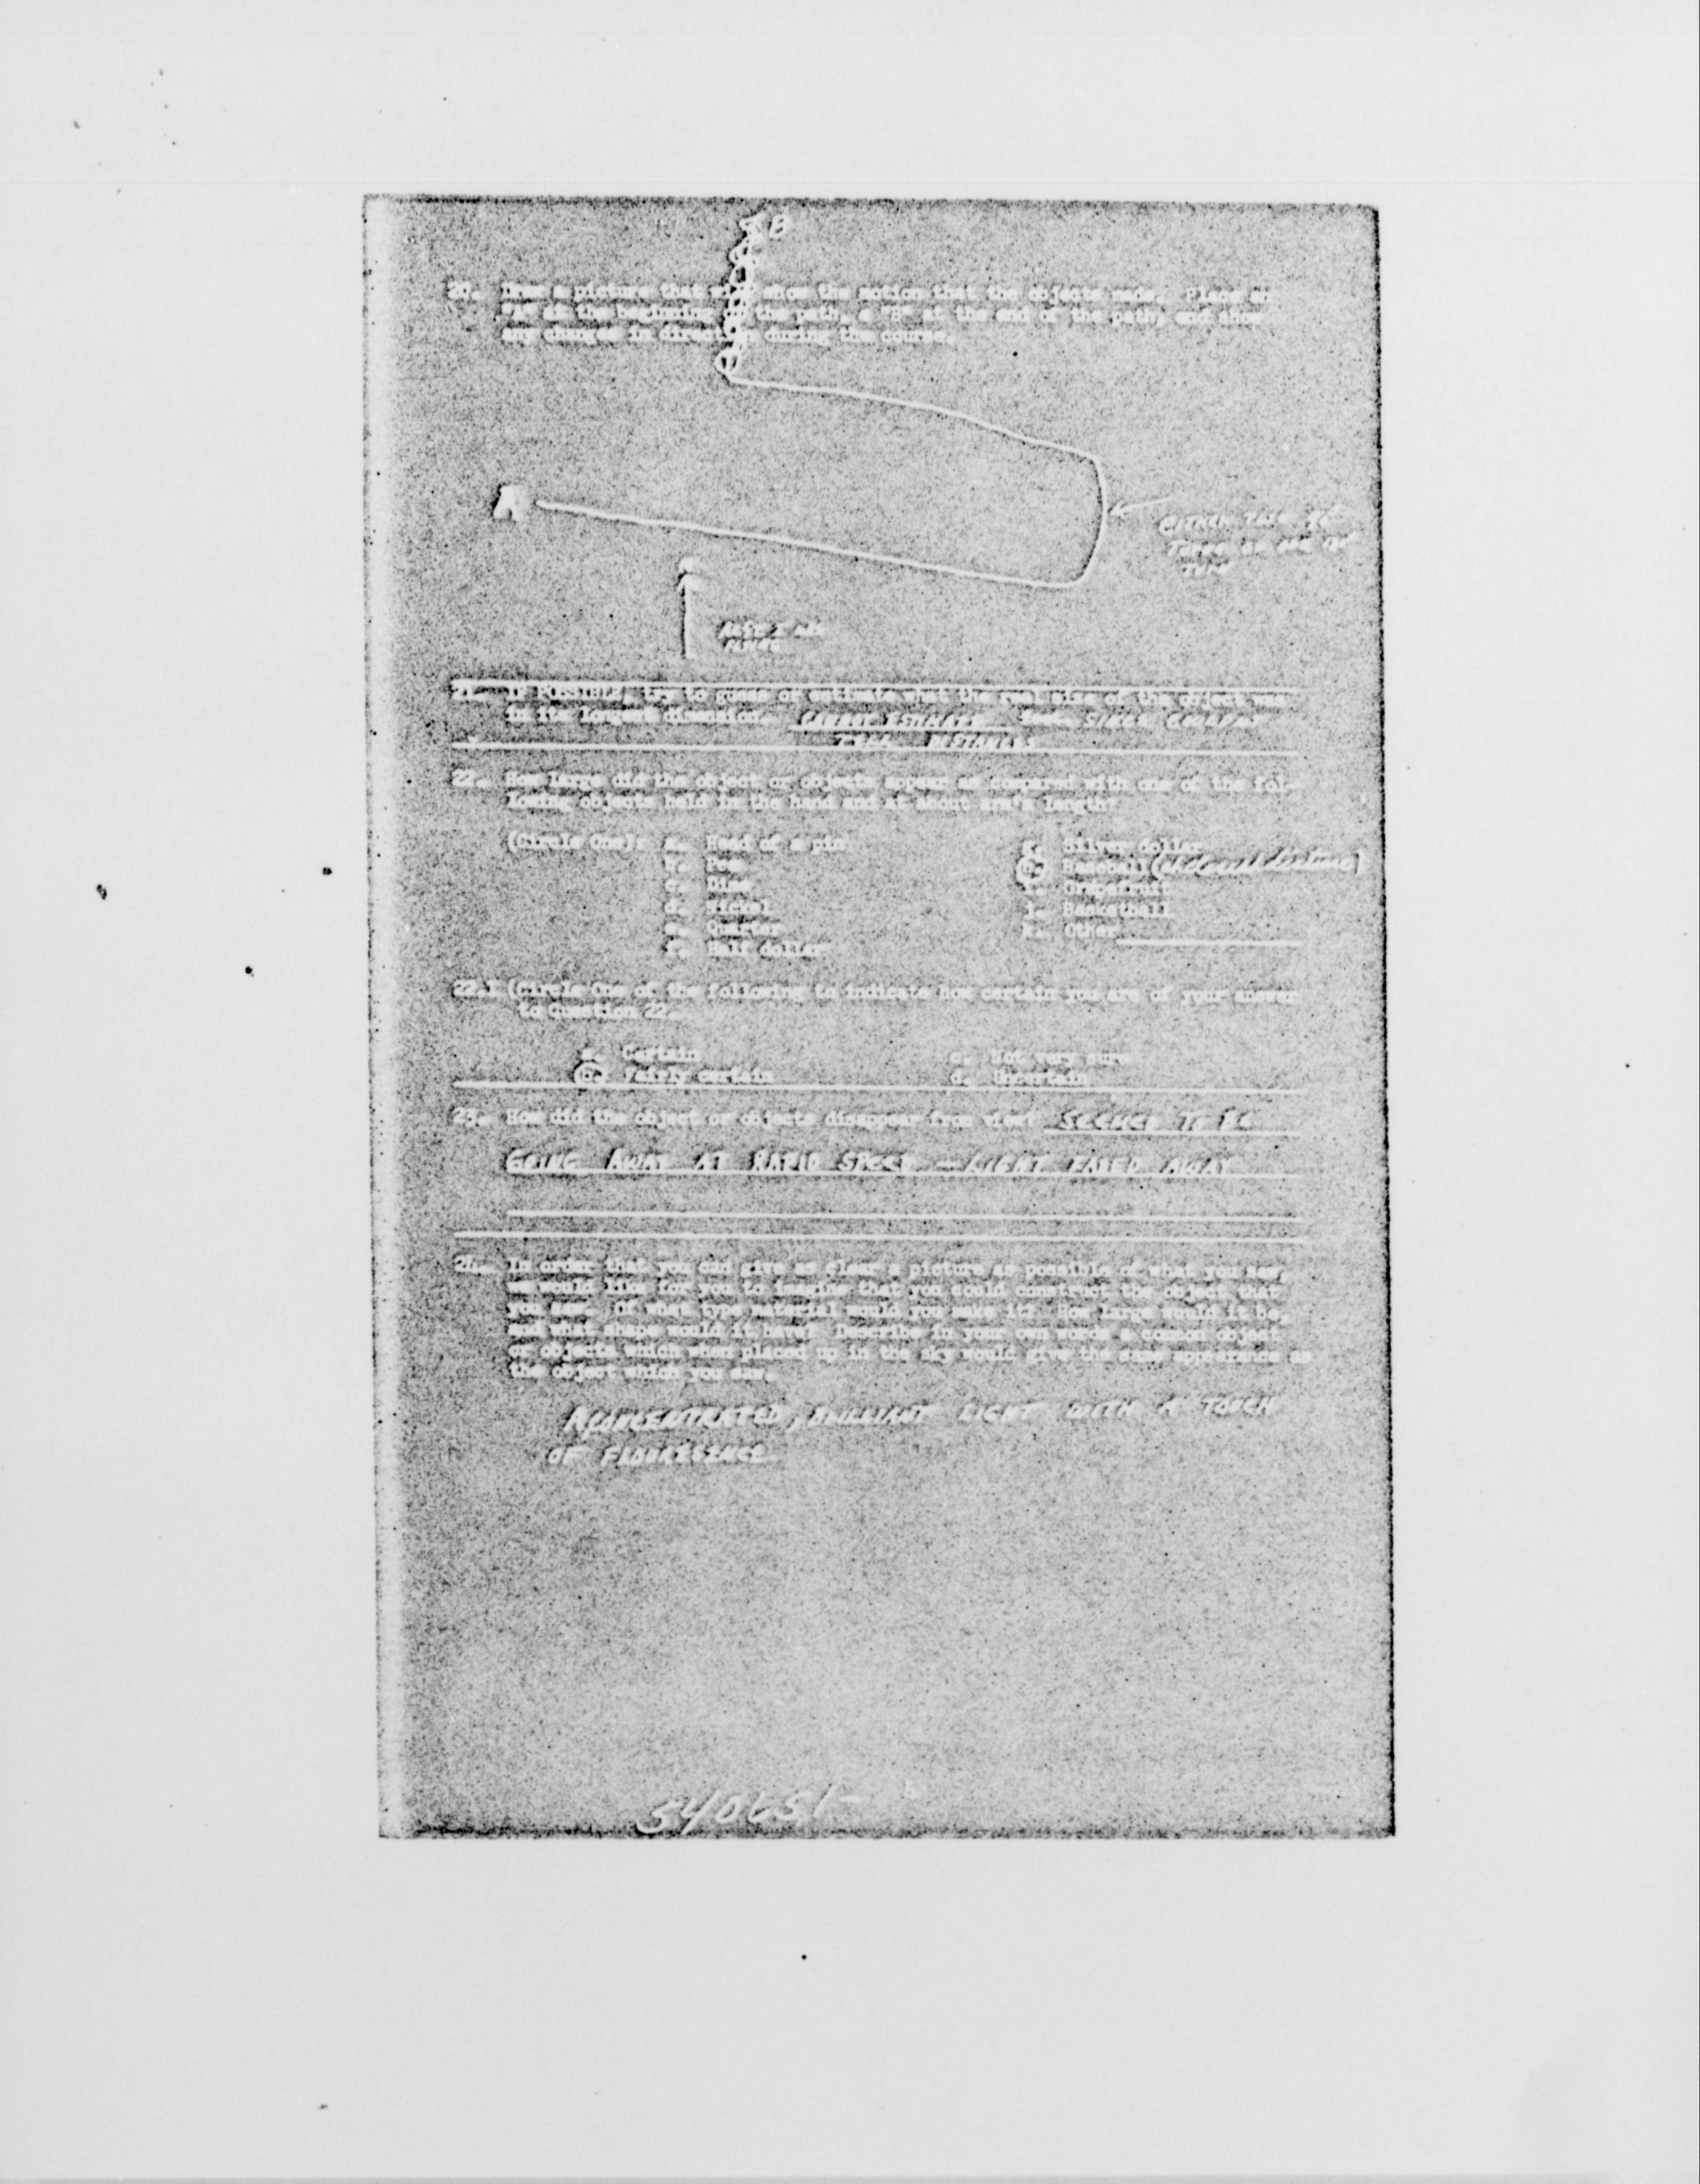 B
20. Draw a picture that will show the motion that the object made. Place an
"A" at the beginning of the path, a "B" at the end of the path, and show
any changes in direction during the course.
A
EITHER TWO 90°
TURNS OR ONE 180°
TURN
21. IF POSSIBLE, try to guess or estimate what the real size of the object was
in its longest dimension. CANNOT ESTIMATE SINCE COULDN'T
TELL DISTANCES
22. How large did the object or objects appear as compared with one of the fol-
lowing objects held in the hand and at about arm's length?
(Circle One): a. Head of a pin
b. Pea
c. Dime
d. Nickel
e. Quarter
f. Half dollar
g. Silver dollar
h. Baseball
i. Grapefruit
j. Basketball
k. Other
22.1 (Circle One of the following to indicate how certain you are of your answer
to Question 22.
a. Certain
b. Fairly certain
c. Not very sure
d. Uncertain
23. How did the object or objects disappear from view? SEEMED TO BE
GOING AWAY AT RAPID SPEED — LIGHT FADED AWAY
24. In order that you can give as clear a picture as possible of what you saw,
we would like for you to imagine that you could construct the object that
you saw. Of what type material would you make it? How large would it be,
and what shape would it have? Describe in your own words a common object
or objects which when placed up in the sky would give the same appearance as
the object which you saw.
A CONCENTRATED, BRILLIANT LIGHT WITH A TOUCH
OF FLOURESINCE